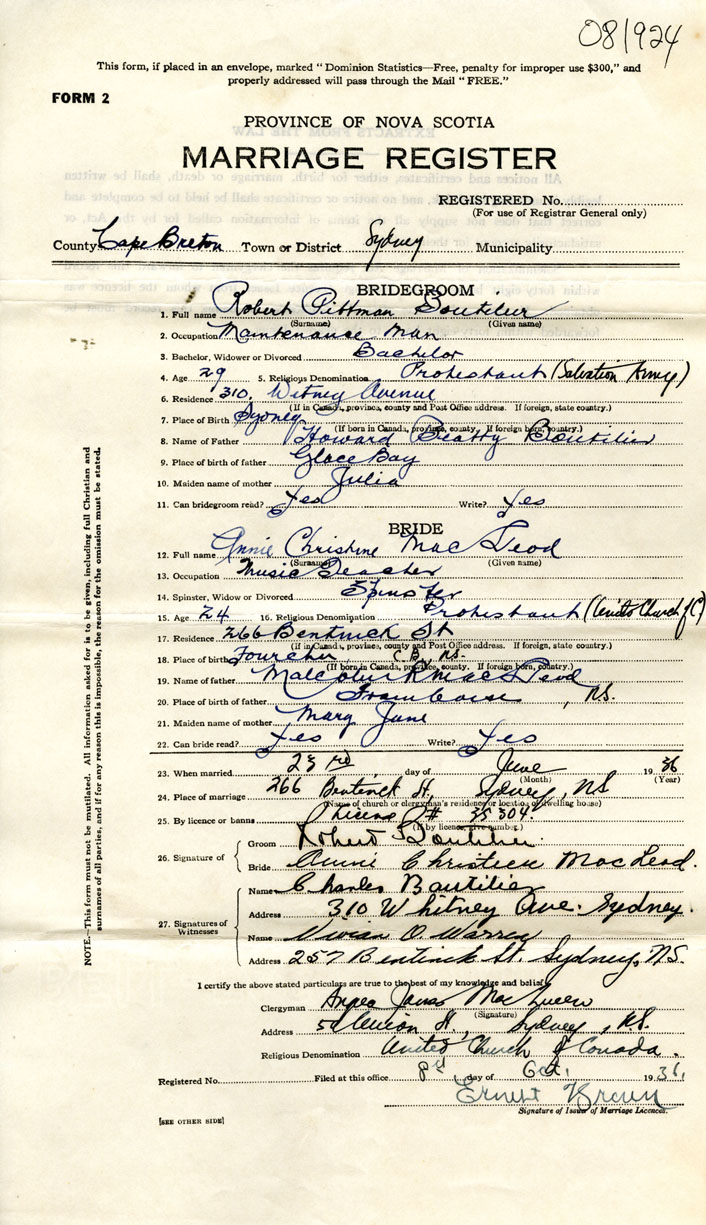 081924
This form, if placed in an envelope, marked "Dominion Statistics—Free, penalty for improper use $300," and
properly addressed will pass through the Mail "FREE."
FORM 2
PROVINCE OF NOVA SCOTIA
MARRIAGE REGISTER
REGISTERED No.
(For use of Registrar General only)
County Cape Breton Town or District Sydney Municipality
BRIDEGROOM
1. Full name Robert Pittman Boutilier
(Surname) (Given name)
2. Occupation Maintenance Man
3. Bachelor, Widower or Divorced Bachelor
4. Age 29 5. Religious Denomination Protestant (Salvation Army)
6. Residence 310, Witney Avenue
(If in Canada, province, county and Post Office address. If foreign, state country.)
7. Place of Birth Sydney
(If born in Canada, province, county. If foreign born, country.)
8. Name of Father Howard Beatty Boutilier
9. Place of birth of father Glace Bay
10. Maiden name of mother Julia
11. Can bridegroom read? Yes Write? Yes
BRIDE
12. Full name Annie Christine MacLeod
(Surname) (Given name)
13. Occupation Music Teacher
14. Spinster, Widow or Divorced Spinster
15. Age 24 16. Religious Denomination Protestant (United Church of C)
17. Residence 266 Bentinck St
(If in Canada, province, county and Post Office address. If foreign, state country.)
18. Place of birth Fourchu C.B. N.S.
(If born in Canada, province, county. If foreign born, country.)
19. Name of father Malcolm R MacLeod
20. Place of birth of father Framboise, N.S.
21. Maiden name of mother Mary Jane
22. Can bride read? Yes Write? Yes
23. When married 23rd day of June 1936
(Month) (Year)
24. Place of marriage 266 Bentinck St, Sydney, NS
(Name of church or clergyman's residence or location of dwelling house)
25. By licence or banns Licence # 35304
(If by licence, give number.)
26. Signature of
Groom Robert Boutilier
Bride Annie Christine MacLeod.
27. Signatures of Witnesses
Name Charles Boutilier
Address 310 Whitney Ave. Sydney.
Name Vivian O. Warren
Address 257 Bentinck St. Sydney, N.S.
I certify the above stated particulars are true to the best of my knowledge and belief.
Clergyman James MacQueen
(Signature)
Address Union St., Sydney, N.S.
Religious Denomination United Church of Canada.
Registered No. Filed at this office 8th day of Oct. 1936.
Ernest Brown
Signature of Issuer of Marriage Licences.
[SEE OTHER SIDE]
NOTE.—This form must not be mutilated. All information asked for is to be given, including full Christian and
surnames of all parties, and if for any reason this is impossible, the reason for the omission must be stated.